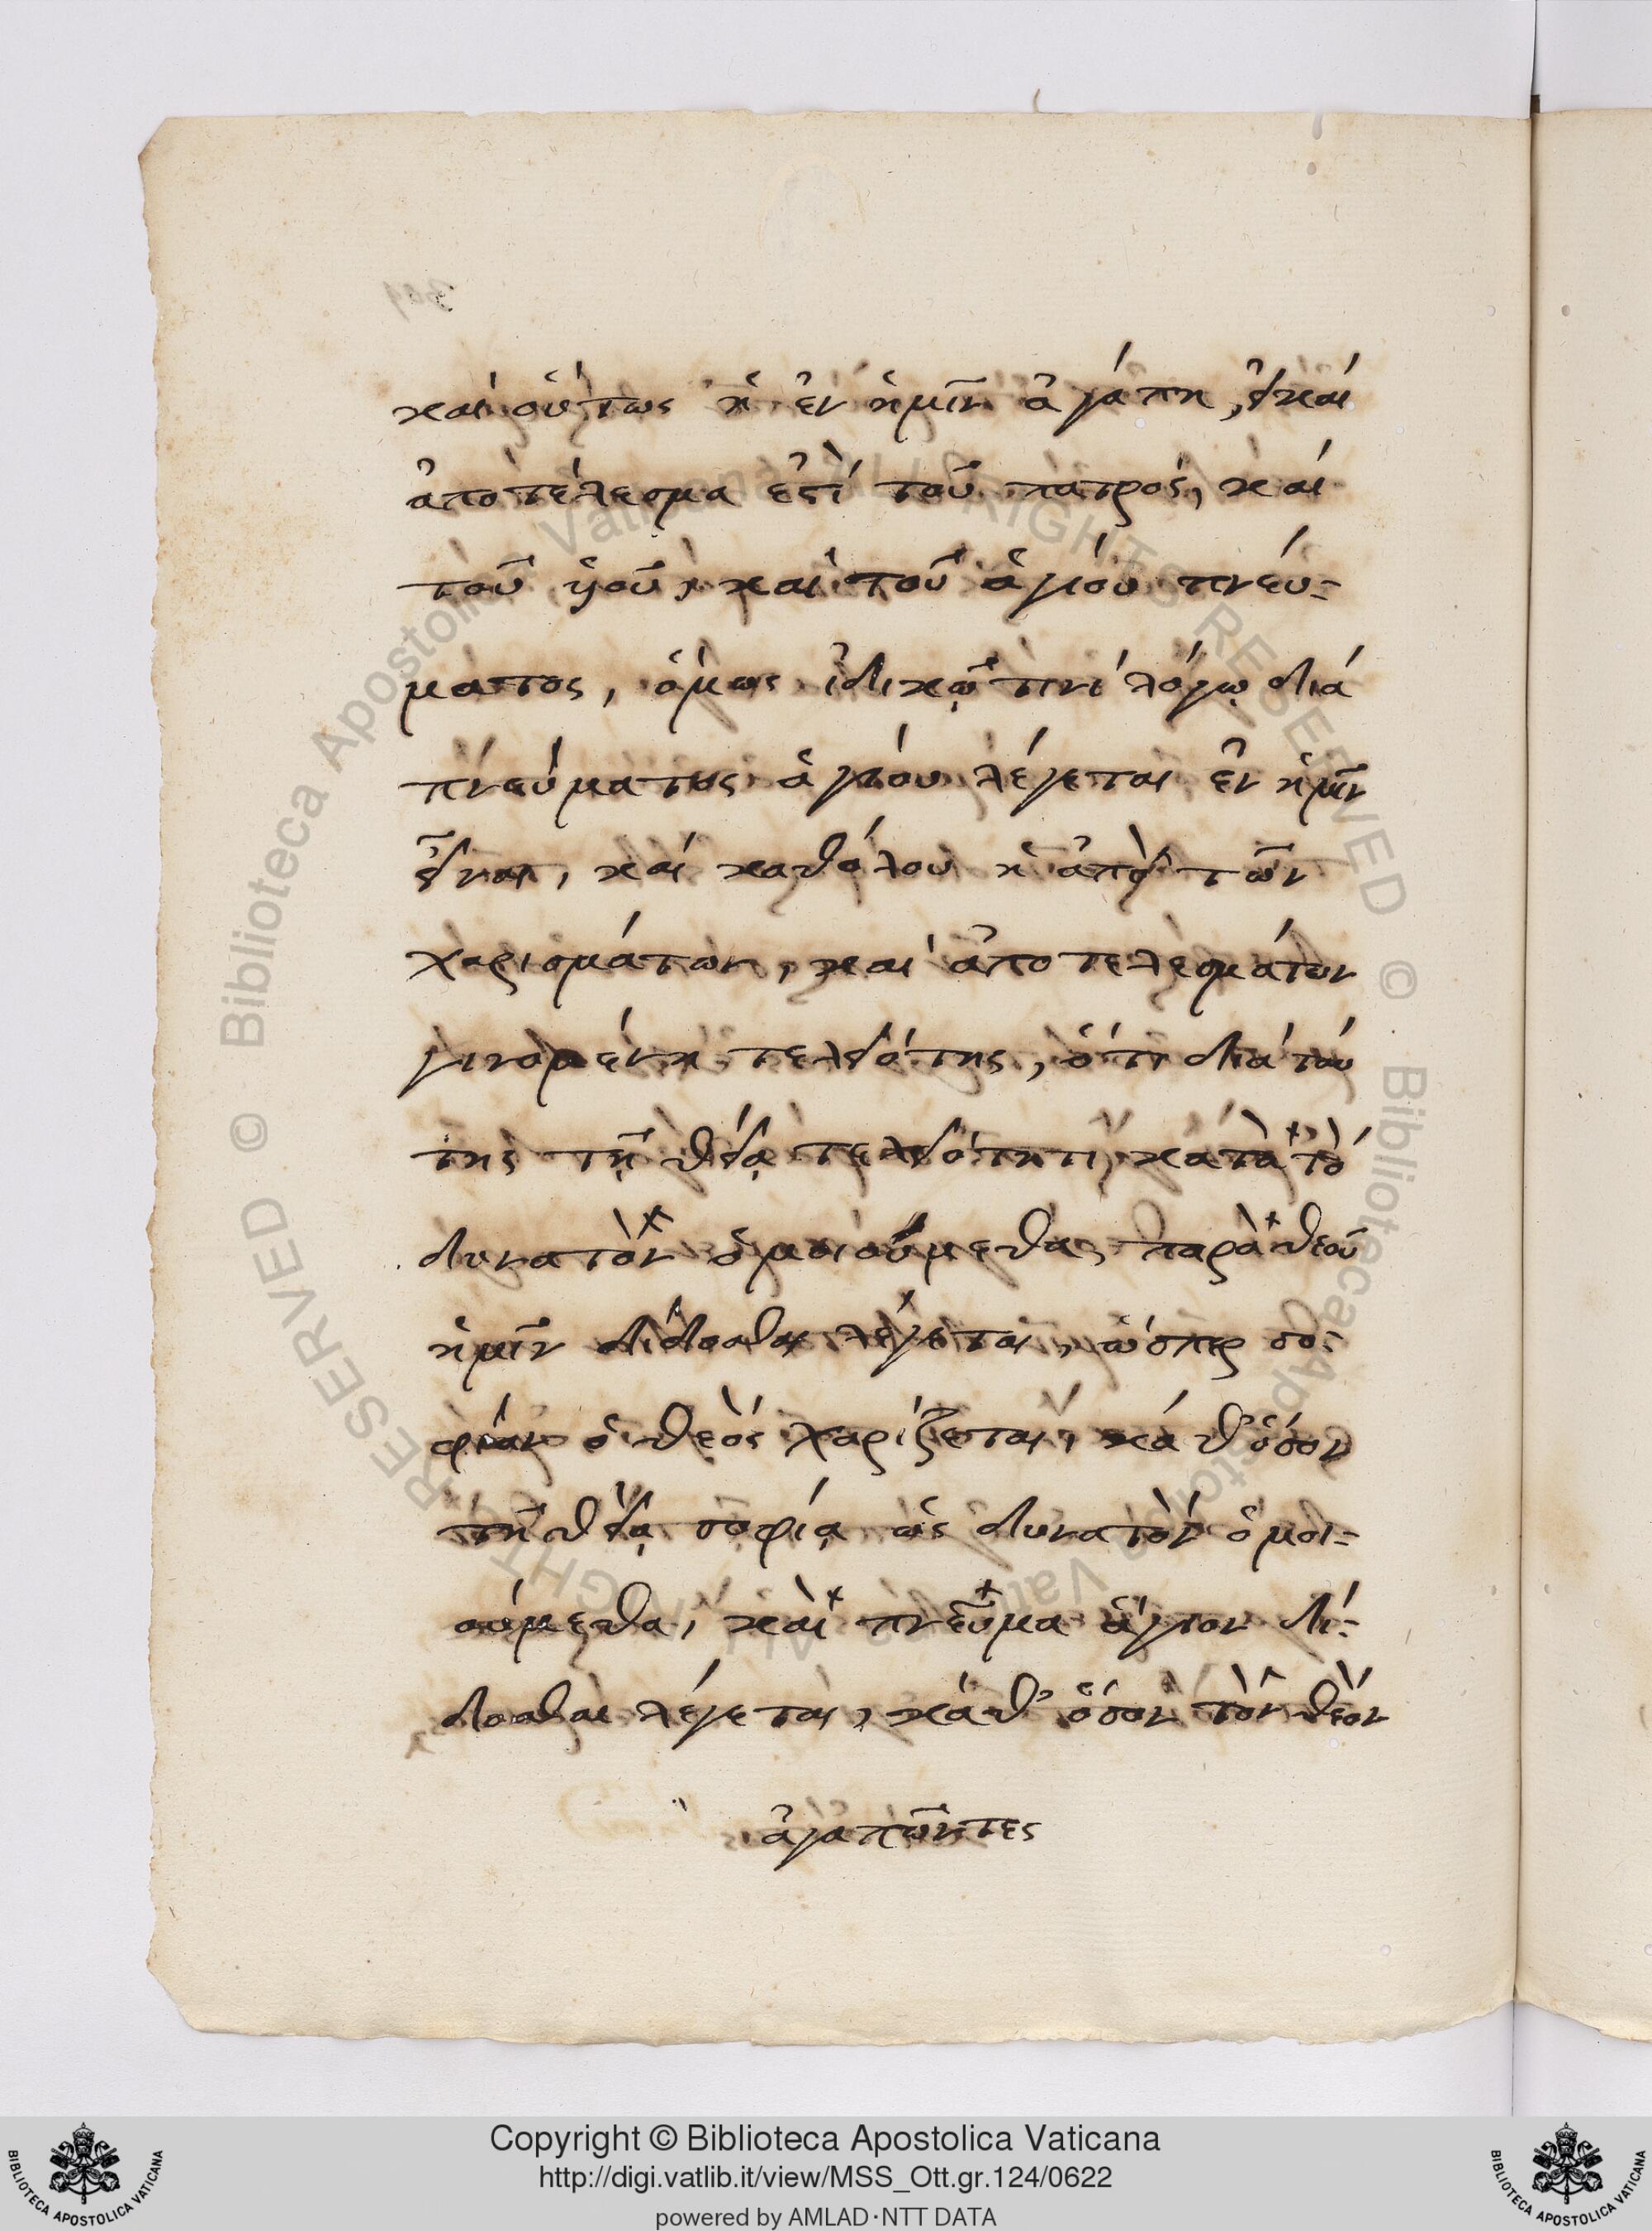 καὶ οὕτως ἡ ἐν ἡμῖν ἀγάπη, εἰ καί
ἀποτέλεσμα ἐστί τοῦ πατρός, καί
τοῦ ὑιοῦ, καί τοῦ ἁγίου πνεύ-
ματος, ὅμως ἰδικῷ τινί λόγῳ διά
πνεύματος ἁγίου λέγεται ἐν ἡμῖν
εἶναι, καί καθόλου ἡ ἀπό τῶν
χαρισμάτων, καί ἀποτελεσμάτων
γινομένη τελειότης, ὅτι διά ταύ
της τῇ θείᾳ τελειότητι κατὰ τό
δυνατὸν ὁμοιούμεθα, παρὰ θεοῦ
ἡμῖν δίδοσθαι λέγεται, ὥσπερ σο-
φίαν ὁ θεός χαρίζεται, κάθ' ὅσον
τῇ θείᾳ σοφίᾳ ὡς δυνατόν ὁμοι-
ούμεθα, καὶ πνεῦμα ἅγιον δί-
δοσθαι λέγεται, κάθ' ὅσον τὸν θεὸν
ἀγαπῶντες
Copyright © Biblioteca Apostolica Vaticana
http://digi.vatlib.it/view/MSS_Ott.gr.124/0622
powered by AMLAD·NTT DATA